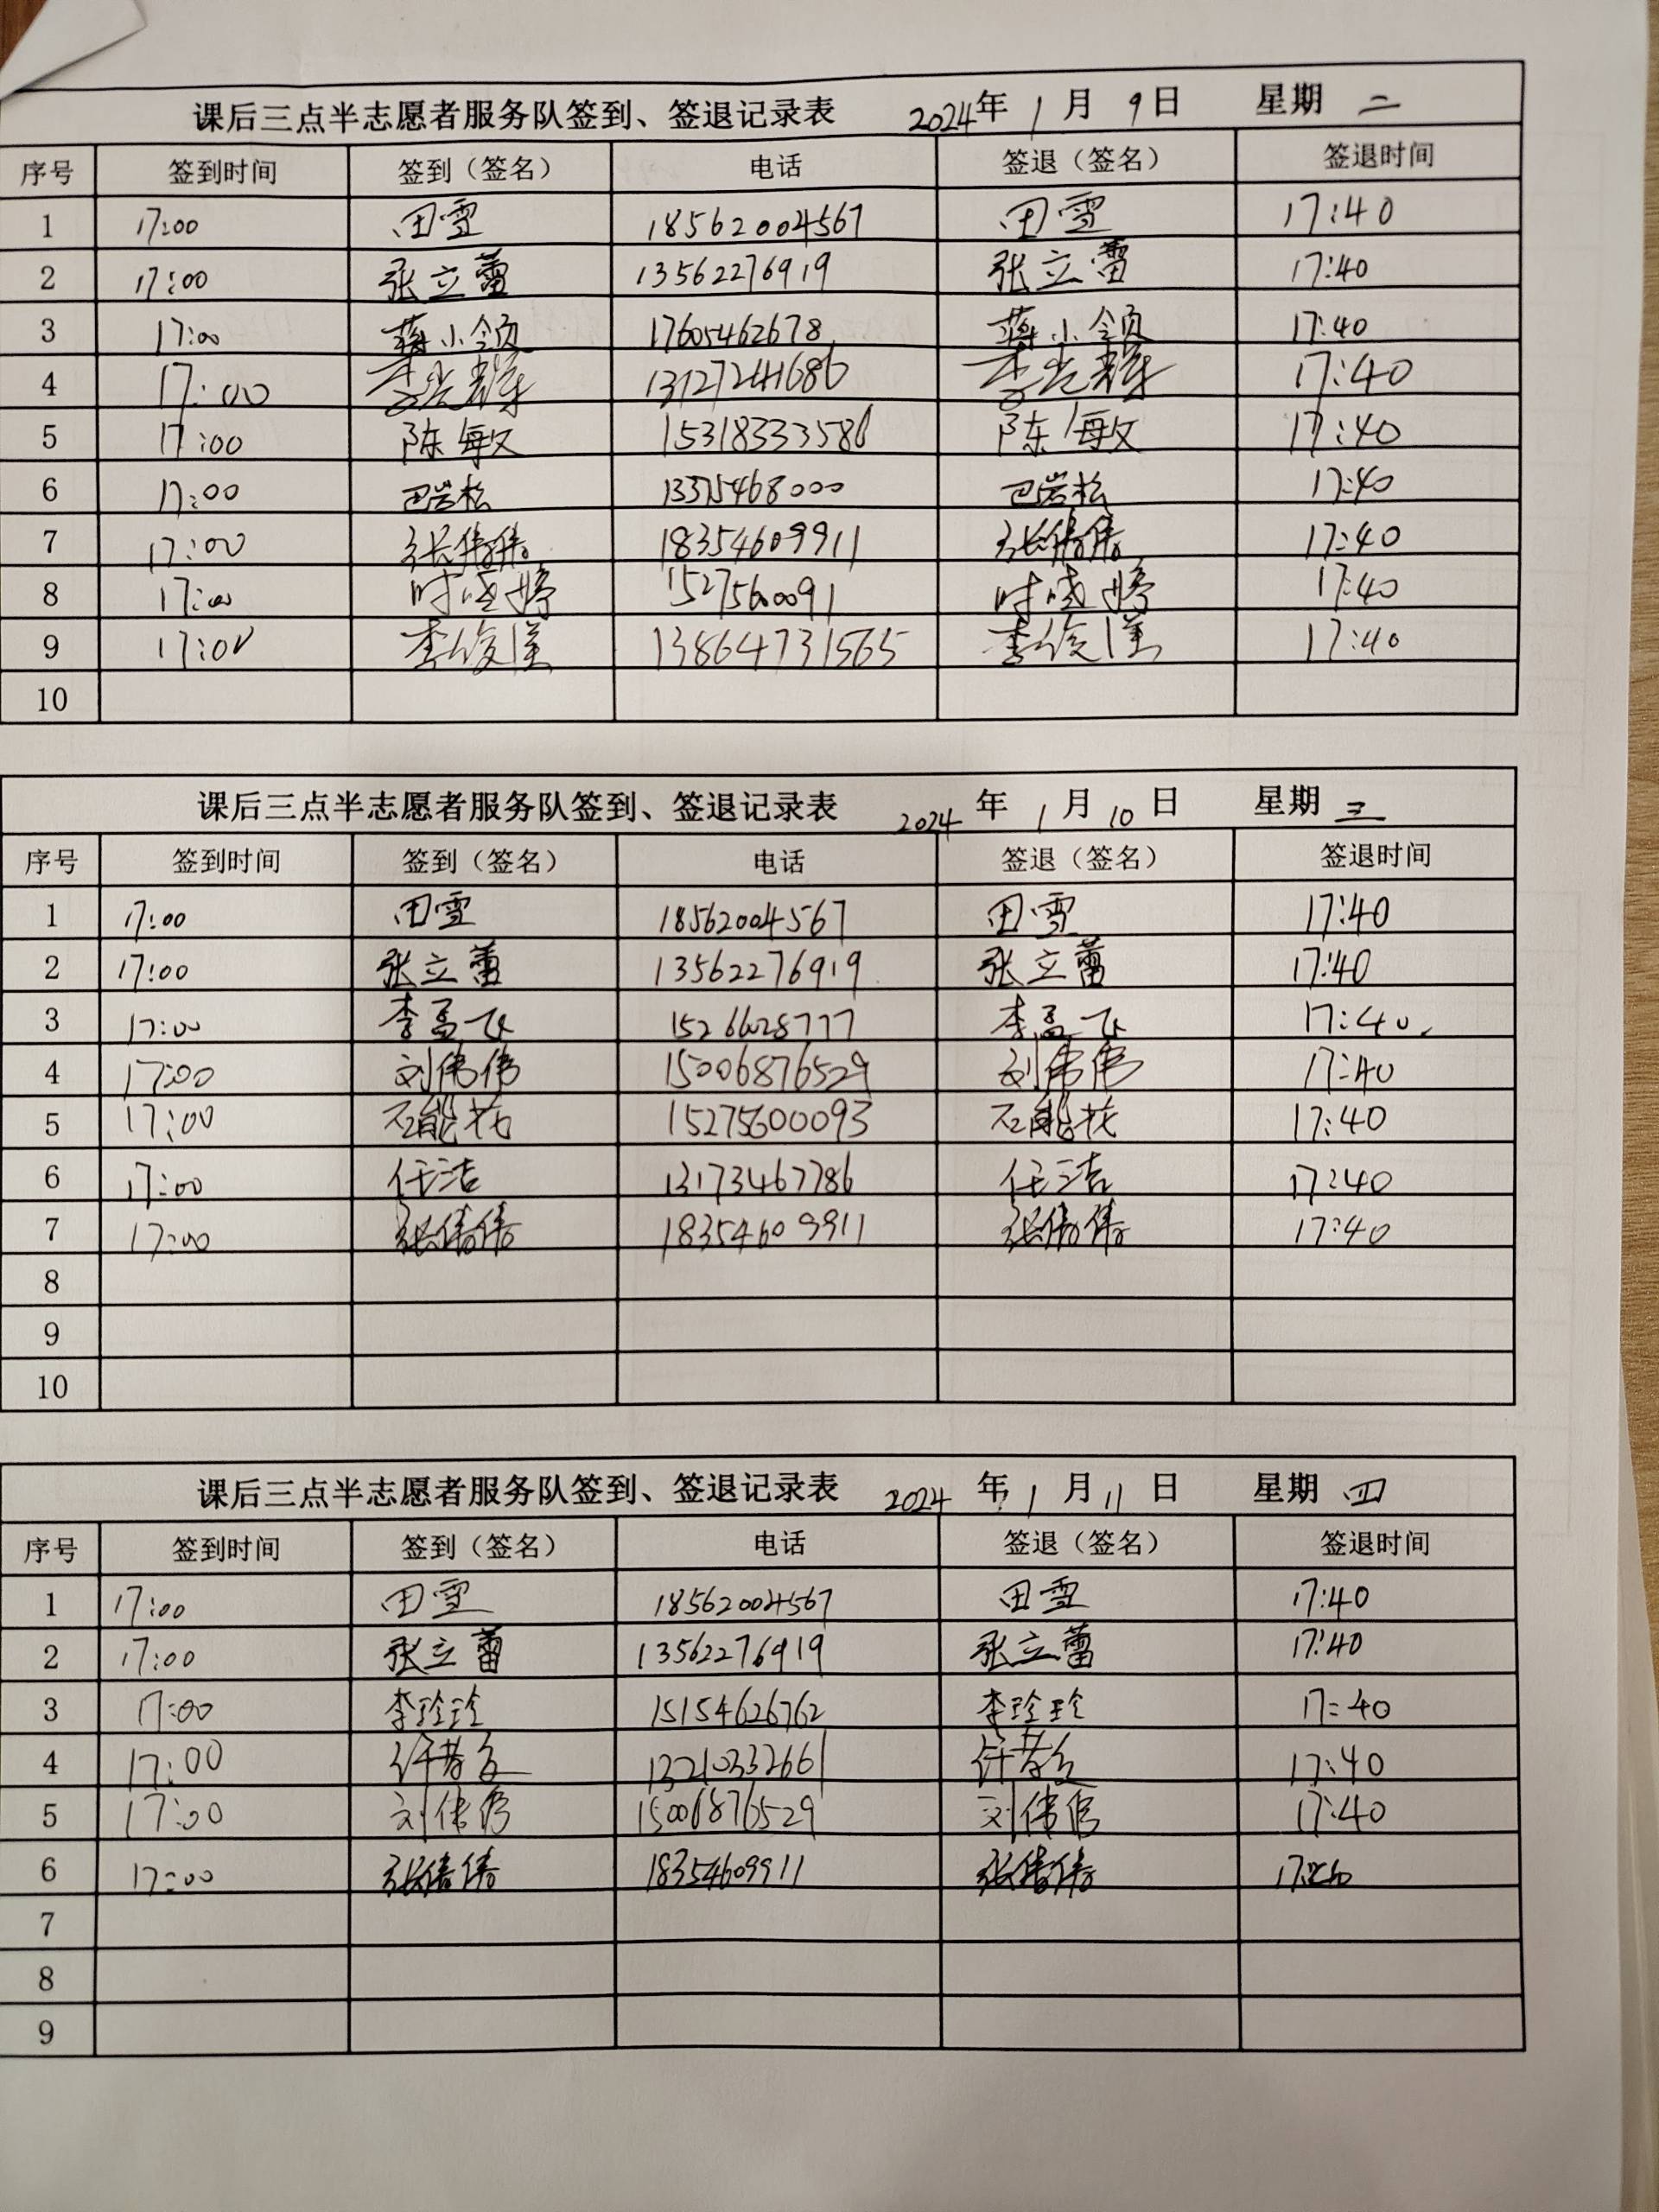 课后三点半志愿者服务队签到、签退记录表 2024年1月9日 星期二
序号 签到时间 签到（签名） 电话 签退（签名） 签退时间
1 17:00 田雪 18562004567 田雪 17:40
2 17:00 张立蕾 13562276919 张立蕾 17:40
3 17:00 蒋小领 17605462678 蒋小领 17:40
4 17:00 李光辉 17:40
5 17:00 陈敏 15318333586 陈敏 17:40
6 17:00 巴岩松 巴岩松 17:40
7 17:00 张倩倩 18354609911 张倩倩 17:40
8 17:00 17:40
9 17:00 13864731565 17:40
10
课后三点半志愿者服务队签到、签退记录表 2024年1月10日 星期三
序号 签到时间 签到（签名） 电话 签退（签名） 签退时间
1 17:00 田雪 18562004567 田雪 17:40
2 17:00 张立蕾 13562276919 张立蕾 17:40
3 17:00 李孟飞 李孟飞 17:40
4 17:00 刘伟伟 15006876529 刘伟伟 17:40
5 17:00 石能花 15275600093 石能花 17:40
6 17:00 任洁 13173467786 任洁 17:40
7 17:00 张倩倩 18354609911 张倩倩 17:40
8
9
10
课后三点半志愿者服务队签到、签退记录表 2024年1月11日 星期四
序号 签到时间 签到（签名） 电话 签退（签名） 签退时间
1 17:00 田雪 18562004567 田雪 17:40
2 17:00 张立蕾 13562276919 张立蕾 17:40
3 17:00 李珍珍 15154626762 李珍珍 17:40
4 17:00 13210332661 17:40
5 17:00 刘伟伟 15006876529 刘伟伟 17:40
6 17:00 张倩倩 18354609911 张倩倩 17:40
7
8
9